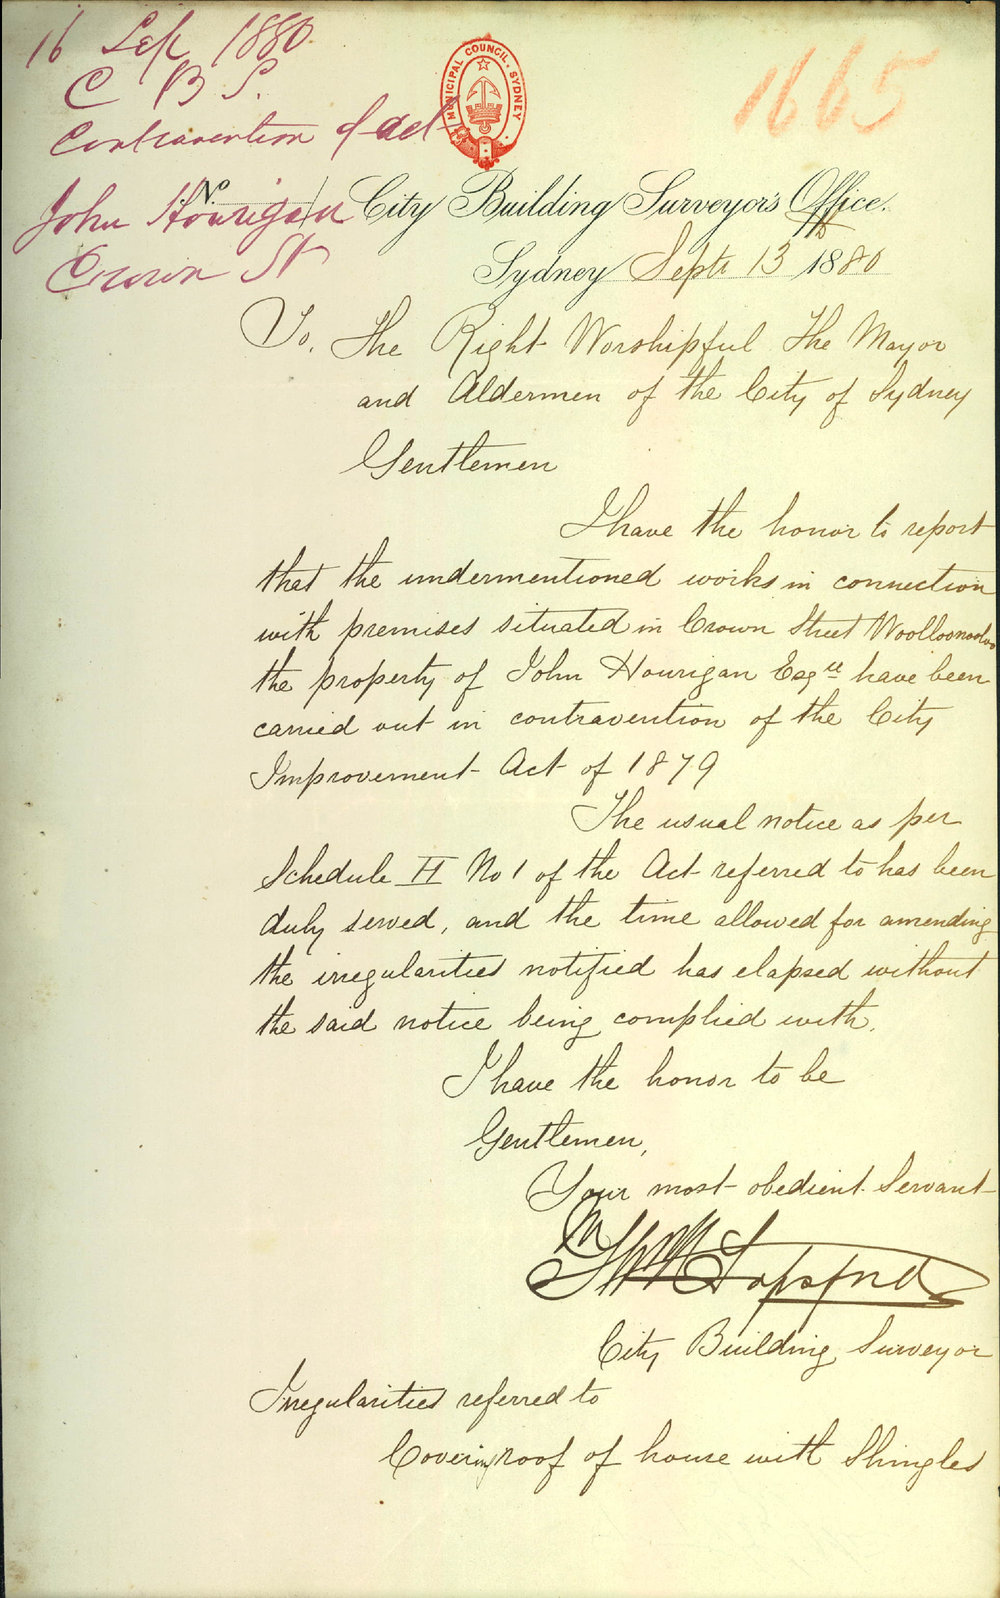 16 Sep 1880
C B S.
Contravention of act
John Hourigan
Crown St
MUNICIPAL COUNCIL · SYDNEY
1665
No.
City Building Surveyor's Office.
Sydney Septr 13th 1880
To, The Right Worshipful The Mayor
and Aldermen of the City of Sydney
Gentlemen
I have the honor to report
that the undermentioned works in connection
with premises situated in Crown Street Woolloomooloo
the property of John Hourigan Esqre have been
carried out in contravention of the City
Improvement Act of 1879
The usual notice as per
Schedule H No 1 of the Act referred to has been
duly served, and the time allowed for amending
the irregularities notified has elapsed without
the said notice being complied with.
I have the honor to be
Gentlemen,
Your most obedient Servant
City Building Surveyor
Irregularities referred to
Covering roof of house with Shingles